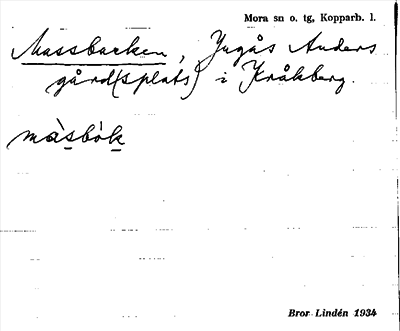 Mora sn o. tg, Kopparb. l.
Massbacken, Jugås Anders
gård(splats) i Kråkberg.
màsbók
Bror Lindén 1934